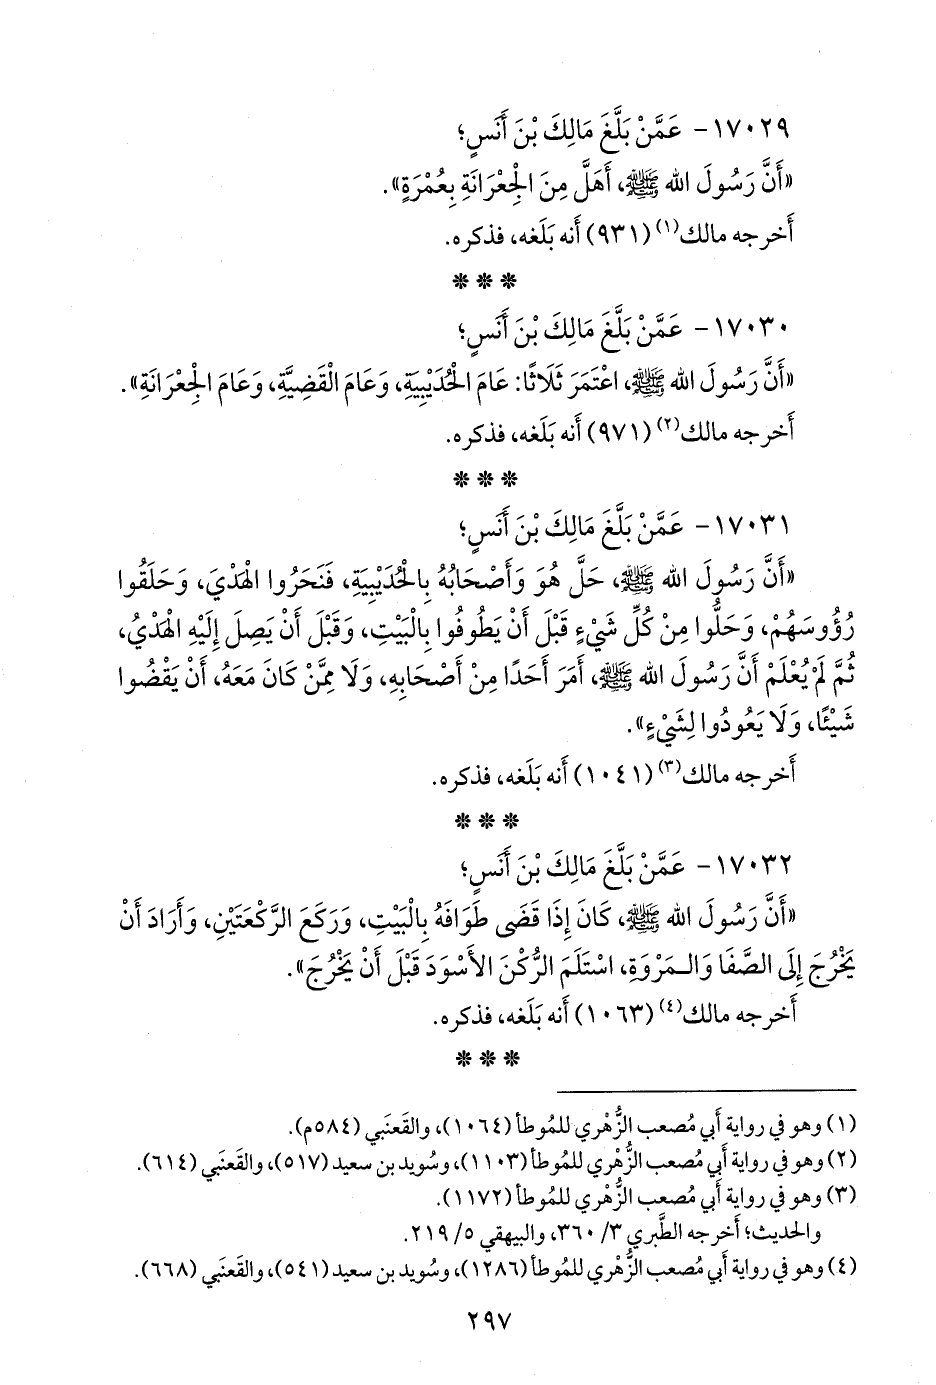 ١٧٠٢٩- عَمَّنْ بَلَّغَ مَالِكَ بْنَ أَنَسٍ؛
«أَنَّ رَسُولَ الله ﷺ، أَهَلَّ مِنَ الْجِعْرَانَةِ بِعُمْرَةٍ».
أَخرجه مالك(١) (٩٣١) أَنه بَلَغه، فذكره.
* * *
١٧٠٣٠- عَمَّنْ بَلَّغَ مَالِكَ بْنَ أَنَسٍ؛
«أَنَّ رَسُولَ الله ﷺ، اعْتَمَرَ ثَلَاثًا: عَامَ الْحُدَيْبِيَةِ، وَعَامَ الْقَضِيَّةِ، وَعَامَ الْجِعْرَانَةِ».
أَخرجه مالك(٢) (٩٧١) أَنه بَلَغه، فذكره.
* * *
١٧٠٣١- عَمَّنْ بَلَّغَ مَالِكَ بْنَ أَنَسٍ؛
«أَنَّ رَسُولَ الله ﷺ، حَلَّ هُوَ وَأَصْحَابُهُ بِالْحُدَيْبِيَةِ، فَنَحَرُوا الْهَدْيَ، وَحَلَقُوا
رُؤُوسَهُمْ، وَحَلُّوا مِنْ كُلِّ شَيْءٍ قَبْلَ أَنْ يَطُوفُوا بِالْبَيْتِ، وَقَبْلَ أَنْ يَصِلَ إِلَيْهِ الْهَدْيُ،
ثُمَّ لَمْ يُعْلَمْ أَنَّ رَسُولَ الله ﷺ، أَمَرَ أَحَدًا مِنْ أَصْحَابِهِ، وَلَا مِمَّنْ كَانَ مَعَهُ، أَنْ يَقْضُوا
شَيْئًا، وَلَا يَعُودُوا لِشَيْءٍ».
أَخرجه مالك(٣) (١٠٤١) أَنه بَلَغه، فذكره.
* * *
١٧٠٣٢- عَمَّنْ بَلَّغَ مَالِكَ بْنَ أَنَسٍ؛
«أَنَّ رَسُولَ الله ﷺ، كَانَ إِذَا قَضَى طَوَافَهُ بِالْبَيْتِ، وَرَكَعَ الرَّكْعَتَيْنِ، وَأَرَادَ أَنْ
يَخْرُجَ إِلَى الصَّفَا وَالـمَرْوَةِ، اسْتَلَمَ الرُّكْنَ الأَسْوَدَ قَبْلَ أَنْ يَخْرُجَ».
أَخرجه مالك(٤) (١٠٦٣) أَنه بَلَغه، فذكره.
* * *
(١) وهو في رواية أَبي مُصعب الزُّهْري للمُوطأ (١٠٦٤)، والقَعنَبي (٥٨٤م).
(٢) وهو في رواية أَبي مُصعب الزُّهْري للمُوطأ (١١٠٣)، وسُويد بن سعيد (٥١٧)، والقَعنَبي (٦١٤).
(٣) وهو في رواية أَبي مُصعب الزُّهْري للمُوطأ (١١٧٢).
والحديث؛ أَخرجه الطَّبري ٣/ ٣٦٠، والبيهقي ٥/ ٢١٩.
(٤) وهو في رواية أَبي مُصعب الزُّهْري للمُوطأ (١٢٨٦)، وسُويد بن سعيد (٥٤١)، والقَعنَبي (٦٦٨).
٢٩٧